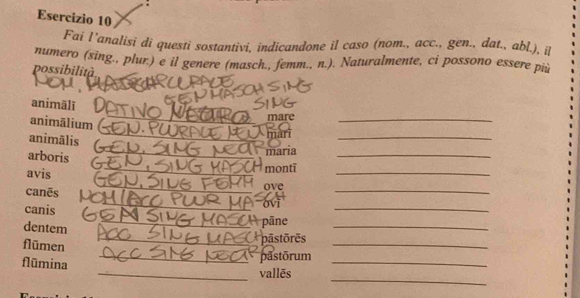 Esercizio 10
Fai l'analisi di questi sostantivi, indicandone il caso (nom., acc., gen., dat., abl.), il
numero (sing., plur.) e il genere (masch., femm., n.). Naturalmente, ci possono essere più
possibilità.
NOM. PLURALE
GEN MASCH SING
animālī DATIVO NEUTRO SING mare
animālium GEN. PLURALE NEUTRO mari
animālis GEN. SING NEUTR maria
arboris GEN. SING MASCH montī
avis GEN. SING FEMM ove
canēs NOM/ACC PLUR MASCH ovī
canis GEN SING MASCH pāne
dentem ACC SING MASCH pāstōrēs
flūmen ACC SING NEUTR pāstōrum
flūmina vallēs